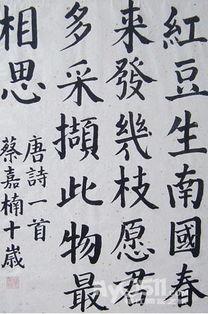 紅豆生南國春
来發幾枝愿君
多采擷此物最
相思
唐詩一首
蔡嘉楠十歲